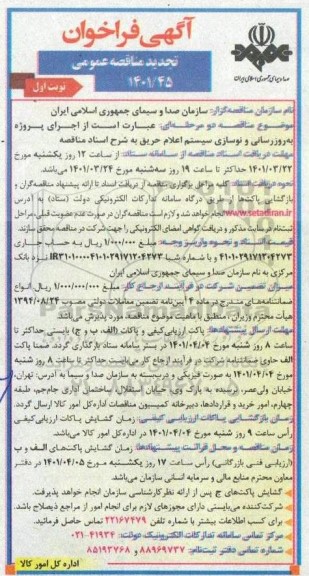 آگهی فراخوان
تجدید مناقصه عمومی
۱۴۰۱/۴۵
نوبت اول
صدا و سیمای جمهوری اسلامی ایران
نام سازمان مناقصه‌گزار: سازمان صدا و سیمای جمهوری اسلامی ایران
موضوع مناقصه دو مرحله‌ای: عبارت است از اجرای پروژه
به‌روزرسانی و نوسازی سیستم اعلام حریق به شرح اسناد مناقصه
مهلت دریافت اسناد مناقصه از سامانه ستاد: از ساعت ۱۲ روز یکشنبه مورخ
۱۴۰۱/۰۳/۲۲ حداکثر تا ساعت ۱۹ روز سه‌شنبه مورخ ۱۴۰۱/۰۳/۲۴ می‌باشد.
نحوه دریافت اسناد: کلیه مراحل برگزاری مناقصه از دریافت اسناد تا ارائه پیشنهاد مناقصه‌گران و
بازگشایی پاکت‌ها از طریق درگاه سامانه تدارکات الکترونیکی دولت (ستاد) به آدرس
www.setadiran.ir انجام خواهد شد و لازم است مناقصه‌گران در صورت عدم عضویت قبلی، مراحل
ثبت‌نام در سایت مذکور و دریافت گواهی امضای الکترونیکی را جهت شرکت در مناقصه محقق سازند.
قیمت اسناد و نحوه واریز وجه: مبلغ ۱/۰۰۰/۰۰۰ ریال به حساب جاری
نزد بانک
مرکزی به نام سازمان صدا و سیمای جمهوری اسلامی ایران
میزان تضمین شرکت در فرآیند ارجاع کار: مبلغ ۱/۰۰۰/۰۰۰/۰۰۰ ریال انواع
ضمانتنامه‌های مندرج در ماده ۴ آیین‌نامه تضمین معاملات دولتی مصوب ۱۳۹۴/۰۸/۲۴
هیأت محترم وزیران، منطبق با ماهیت موضوع مناقصه، مورد پذیرش می‌باشد.
مهلت ارسال پیشنهادها: پاکت ارزیابی کیفی و پاکات (الف، ب و ج) بایستی حداکثر تا
ساعت ۸ روز شنبه مورخ ۱۴۰۱/۰۴/۰۴ در بستر سامانه ستاد بارگذاری گردد. ضمنا پاکت
الف حاوی ضمانتنامه شرکت در فرآیند ارجاع کار می‌بایست حداکثر تا ساعت ۸ روز شنبه
مورخ ۱۴۰۱/۰۴/۰۴ به صورت فیزیکی و دربسته به سازمان صدا و سیما به آدرس: تهران،
خیابان ولی‌عصر، نرسیده به پارک وی، خیابان استقلال، ساختمان اداری جام‌جم، طبقه
چهارم، امور خرید و قراردادها، دبیرخانه کمیسیون مناقصات اداره کل امور کالا ارسال گردد.
زمان بازگشایی پاکات ارزیابی کیفی: زمان گشایش پاکات ارزیابی کیفی
رأس ساعت ۹ روز شنبه مورخ ۱۴۰۱/۰۴/۰۴ در اداره کل امور کالا می‌باشد.
زمان مناقصه و محل قرائت پیشنهادها: زمان گشایش پاکت‌های الف و ب
(ارزیابی فنی بازرگانی) رأس ساعت ۱۷ روز یکشنبه مورخ ۱۴۰۱/۰۴/۰۵ در دفتر
معاون محترم منابع مالی و سرمایه انسانی سازمان می‌باشد.
گشایش پاکت‌های ج پس از ارائه نظر کارشناسی سازمان انجام خواهد پذیرفت.
شرکت‌کننده می‌بایستی دارای مجوزهای لازم برای انجام امور از مراجع ذیصلاح باشد.
برای کسب اطلاعات بیشتر با شماره تلفن ۲۲۱۶۷۴۷۹ تماس حاصل فرمائید.
مرکز تماس سامانه تدارکات الکترونیک دولت: ۴۱۹۳۴-۰۲۱
شماره تماس دفتر ثبت‌نام: ۸۸۹۶۹۷۳۷ و ۸۵۱۹۳۷۶۸
اداره کل امور کالا